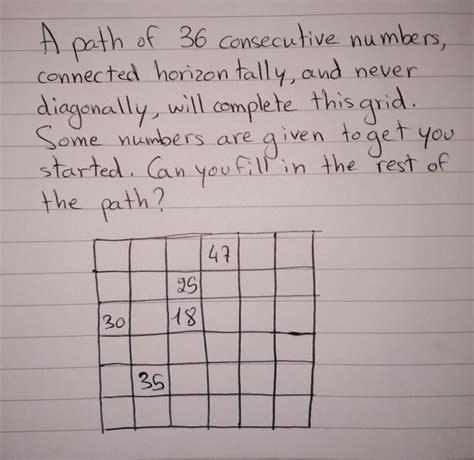 A path of 36 consecutive numbers,
connected horizontally, and never
diagonally, will complete this grid.
Some numbers are given to get you
started. Can you fill in the rest of
the path?
47
25
30 18
35